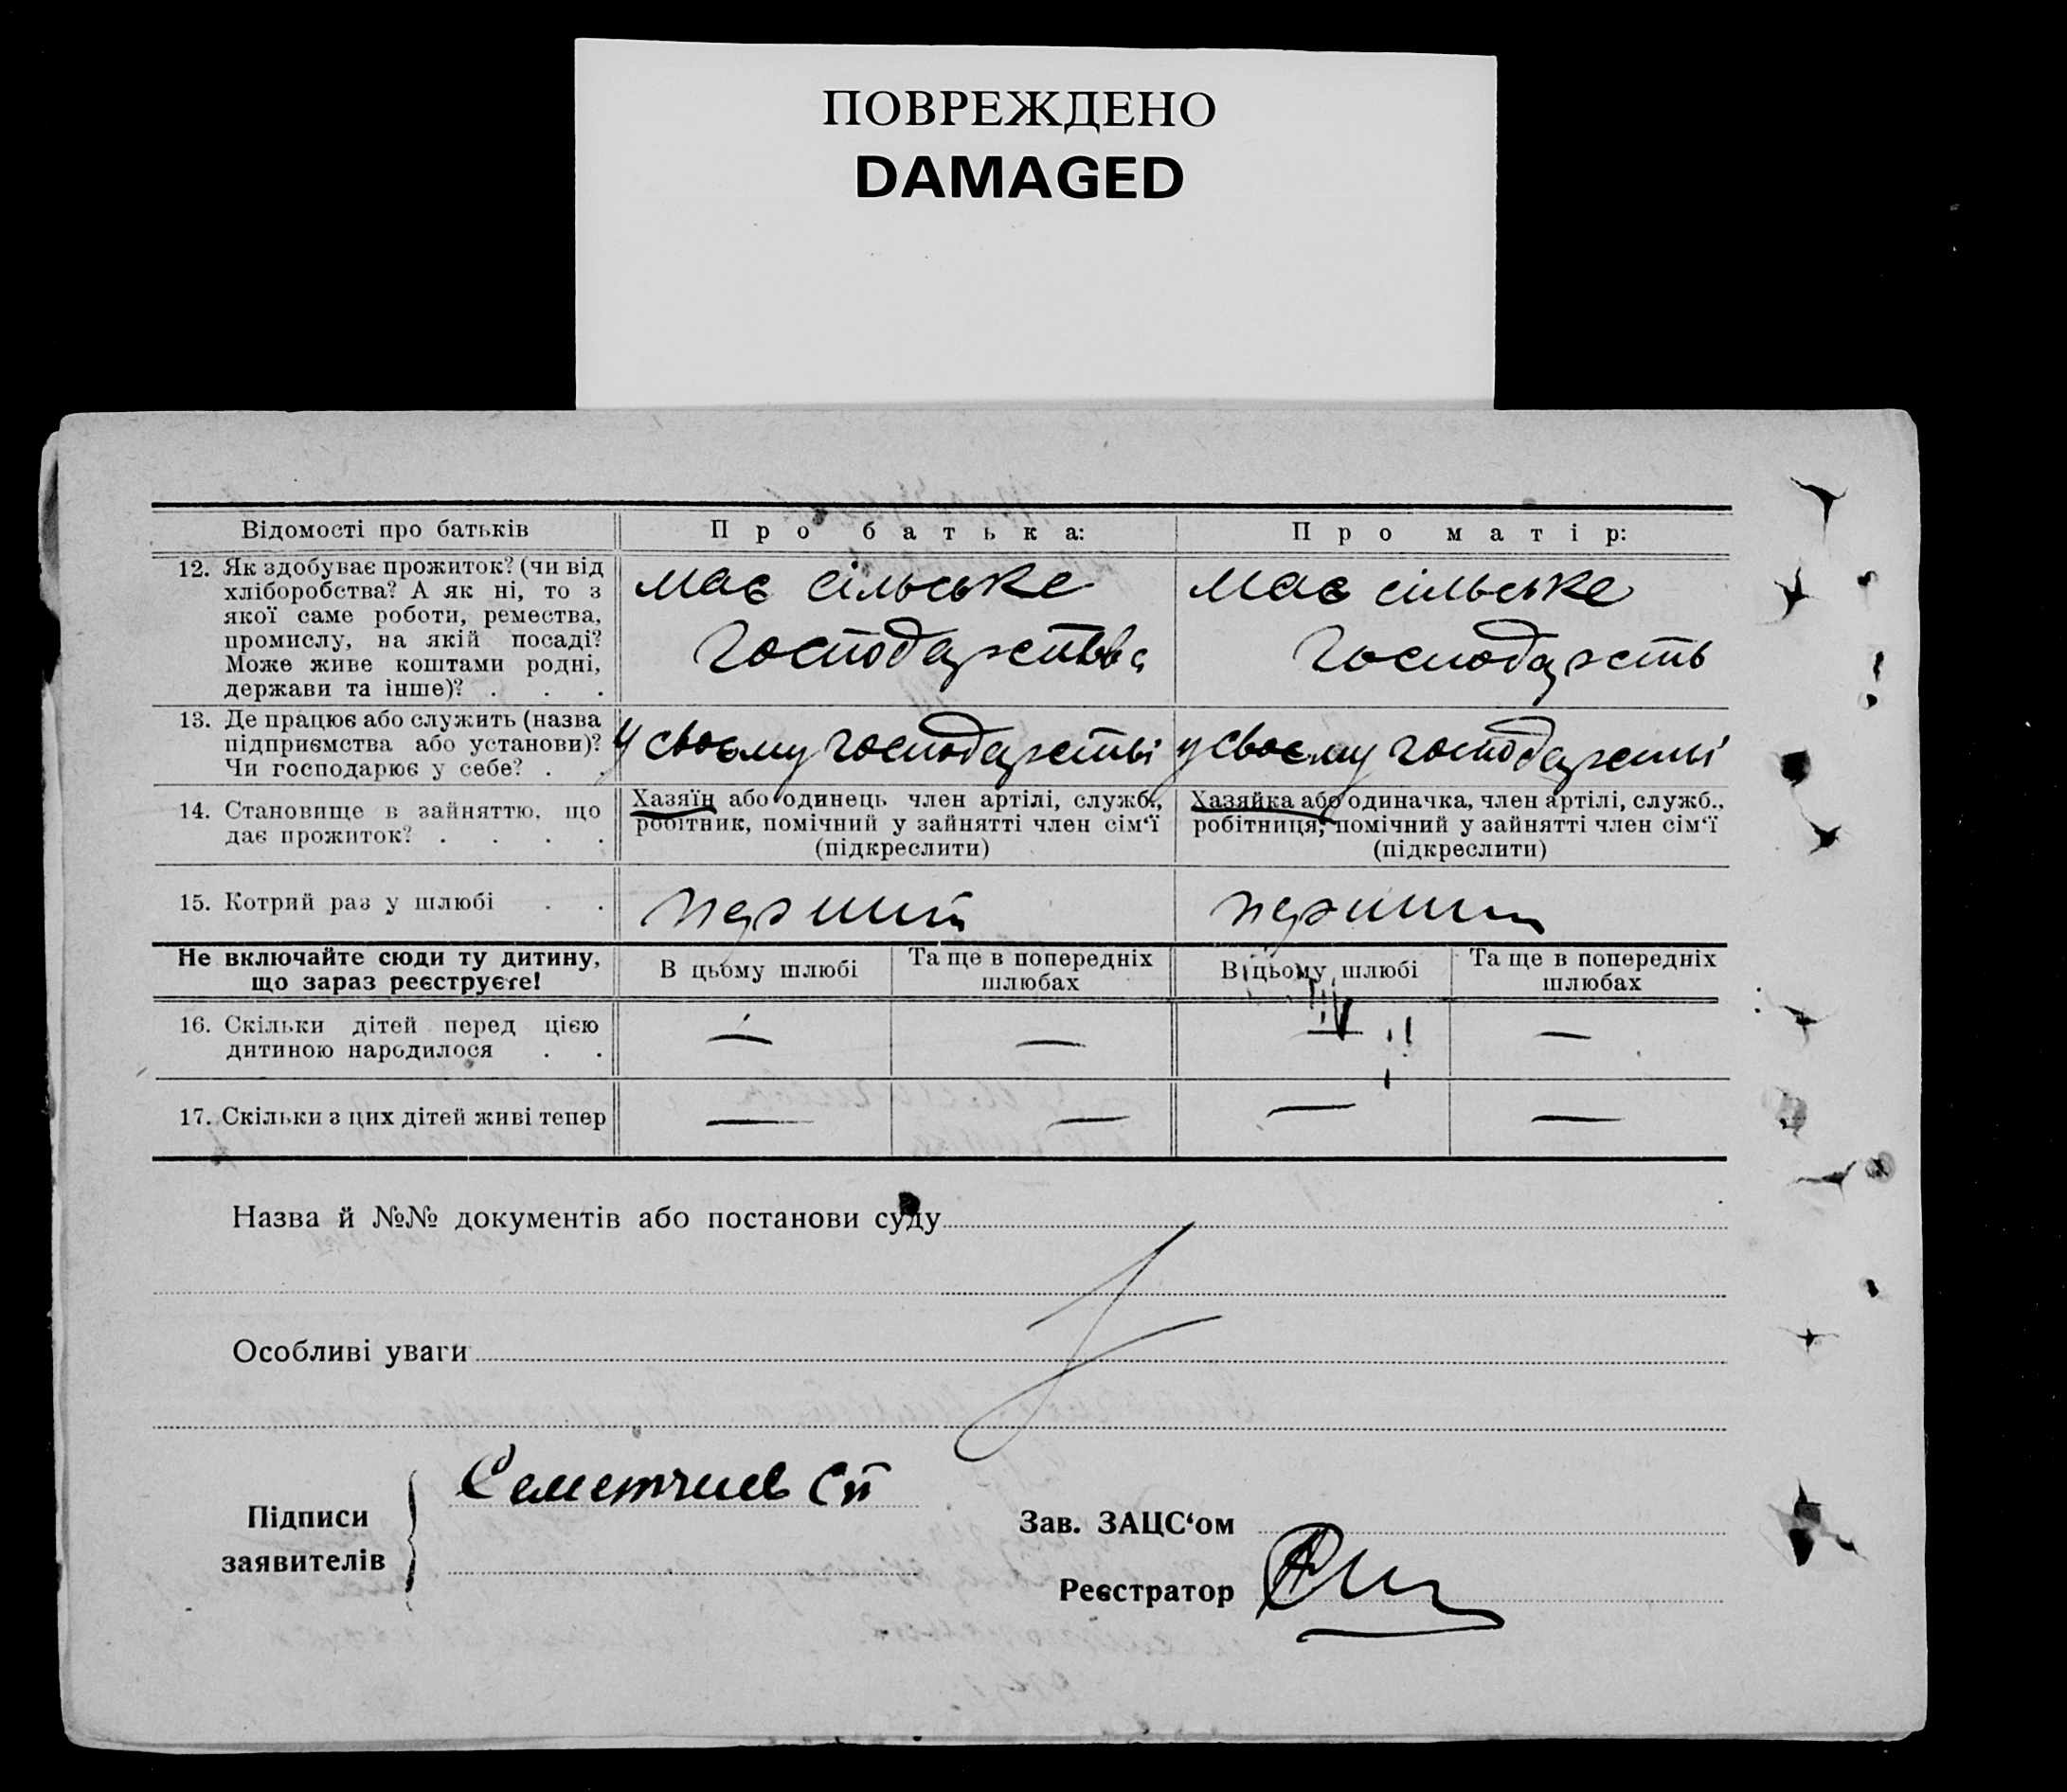 ПОВРЕЖДЕНО
DAMAGED
Відомості про батьків
Про батька:
Про матір:
12. Як здобуває прожиток? (чи від
хліборобства? А як ні, то з
якої саме роботи, ремества,
промислу, на якій посаді?
Може живе коштами родні,
держави та інше)? . . .
має сільське
господарство
має сільське
господарств
13. Де працює або служить (назва
підприємства або установи)?
Чи господарює у себе? . .
у своєму господарстві
у своєму господарстві
14. Становище в зайняттю, що
дає прожиток? . . . .
Хазяїн або одинець член артілі, служб.,
робітник, помічний у зайнятті член сім‘ї
(підкреслити)
Хазяйка або одиначка, член артілі, служб.,
робітниця, помічний у зайнятті член сім‘ї
(підкреслити)
15. Котрий раз у шлюбі . .
перший
перший
Не включайте сюди ту дитину,
що зараз реєструєте!
В цьому шлюбі
Та ще в попередніх
шлюбах
В цьому шлюбі
Та ще в попередніх
шлюбах
16. Скільки дітей перед цією
дитиною народилося . .
—
—
—
17. Скільки з цих дітей живі тепер
—
—
—
—
Назва й №№ документів або постанови суду
Особливі уваги
Підписи
заявителів
Зав. ЗАЦС‘ом
Реєстратор